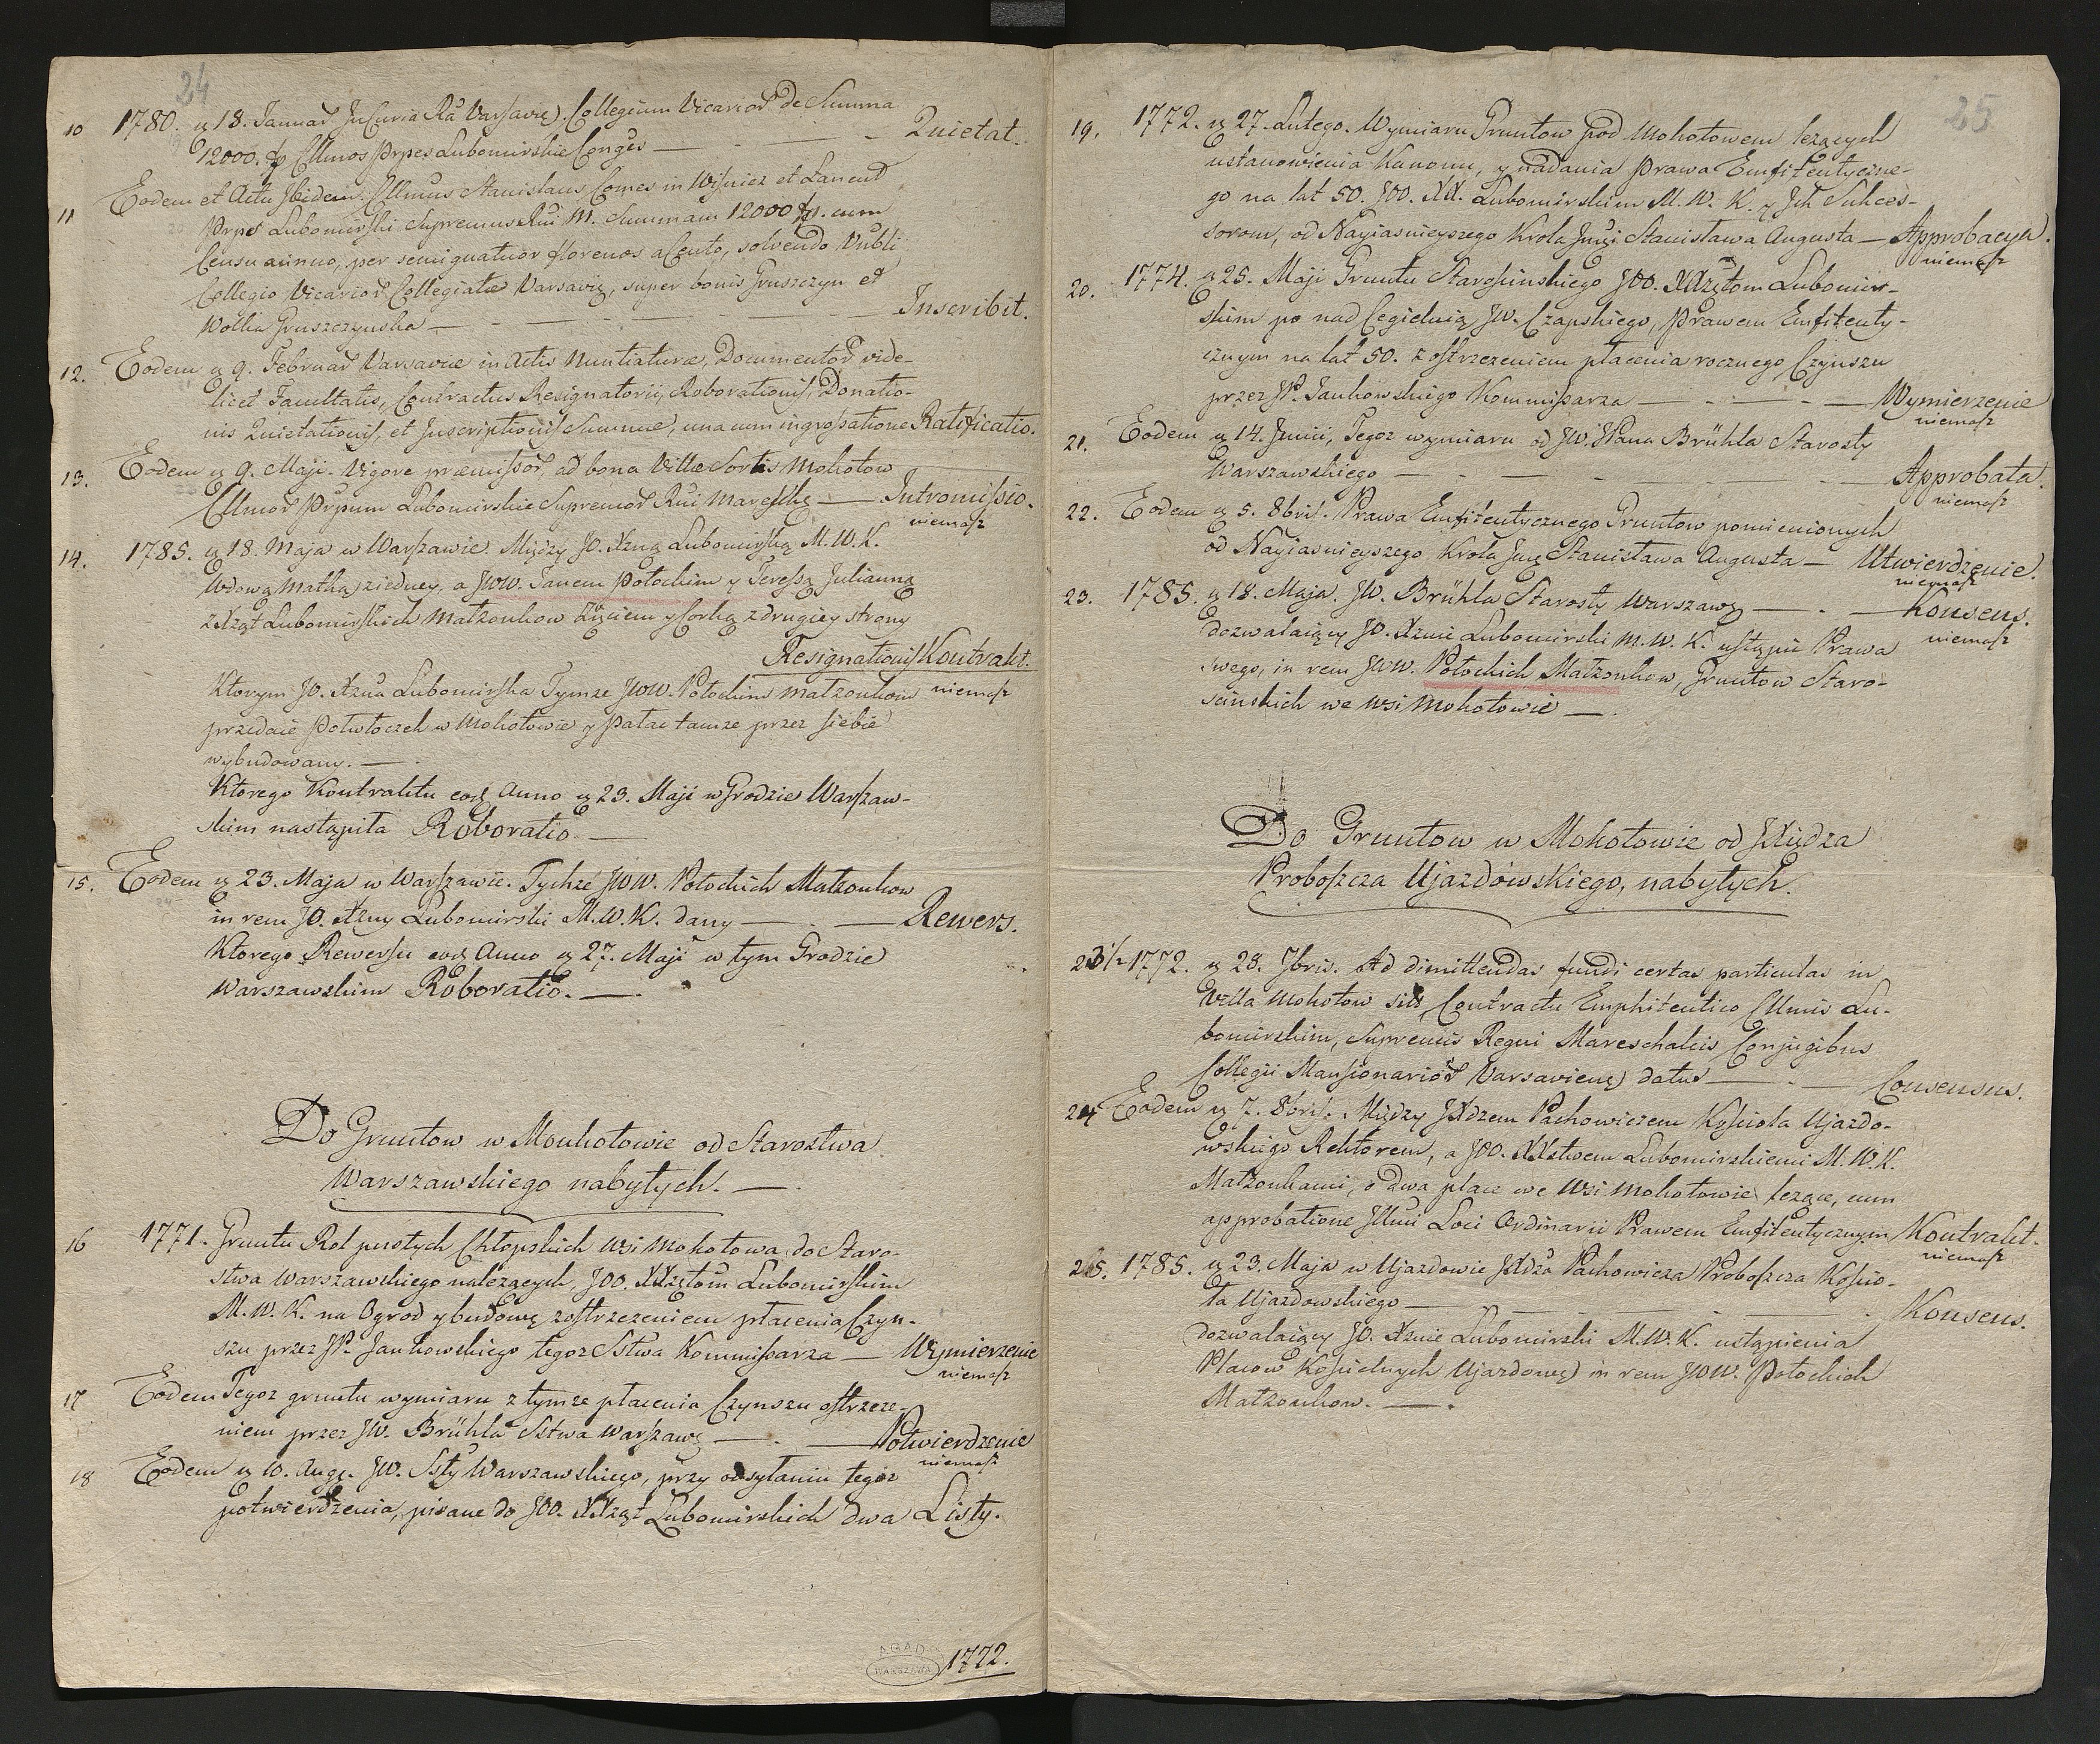 24
10 1780. q 18. Januar. In Curia Rã Varsavię. Collegium Vicarior de Summa
12000. fp Cllmos Prpes Lubomirskie Conges — Quietat.
11 Eodem et Actu Ibidem. Cllmus Stanislaus Comes in Wisnicz et Lancut
Prpes Lubomirski Supremus Rni M. Summam 12000 fp. cum
Censu annuo, per semiquatuor florenos a Cento, solvendo Vnbli
Collegio Vicarior Collegiatæ Varsavię, super bonis Gruszczyn et
Wolka Gruszczynska — Inscribit.
12. Eodem q 9. Februar Varsaviæ in Actis Nuntiaturæ, Documentor vide-
licet Facultatis, Contractus Resignatorii, Roborationis, Donatio-
nis Quietationis, et Inscriptionis Summæ, una cum ingrossatione Ratificatio.
13. Eodem q 9. Maji. Vigore præmissor, ad bona Villæ Sortis Mokotow
Cllmor Prpum Lubomirskie Supremor Rni Mareschę — Intromissio.
niemasz
14. 1785. q 18. Maja w Warszawie. Między JO. Xzną Lubomirską M. W. K.
Wdową Matką z iedney, a JWW. Janem Potockim y Teressą Julianną
z Xząt Lubomirskich Małzonkow Zięciem y Corką z drugiey strony
Resignationis Kontrakt.
Ktorym JO. Xzna Lubomirska Tymze JWW. Potockim Małzonkom niemasz
przedaie Połwłoczek w Mokotowie y Pałac tamze przez siebie
wybudowany. —
Ktorego Kontraktu eod Anno q 23. Maji w Grodzie Warszaw-
skim nastąpiła Roboratio. —
15. Eodem q 23. Maja w Warszawie. Tychze JWW. Potockich Małzonkow
in rem JO. Xzny Lubomirski M. W. K. dany — Rewers.
Ktorego Rewersu eod Anno q 27. Maji w tym Grodzie
Warszawskim Roboratio. —
Do Gruntow w Mokotowie od Starostwa
Warszawskiego nabytych. —
16 1771. Gruntu Rol pustych Chłopskich Wsi Mokotowa, do Staro-
stwa Warszawskiego nalezących, JOO. XXzętom Lubomirskim
M. W. K. na Ogrod y budowę z ostrzezeniem płacenia Czyn-
szu przez JP. Jankowskiego tegoz Sstwa Kommissarza — Wymierzenie
niemasz
17 Eodem Tegoz gruntu wymiaru z tymze płacenia Czynszu ostrzeze-
niem przez JW. Brühla Sstwa Warszawę — Potwierdzenie
niemasz
18 Eodem q 10. Augę. JW. Ssty Warszawskiego, przy odsyłaniu tegoz
potwierdzenia, pisane do JOO. XXząt Lubomirskich dwa Listy.
AGAD
WARSZAWA
1772.
25
19. 1772. q 27. Lutego. Wymiaru Gruntow pod Mokotowem lezących
ustanowienia Kanonu, y nadania Prawa Emfiteutyczne-
go na lat 50. JOO. XX. Lubomirskim M. W. K. y Jch Sukces-
sorom, od Nayiasnieyszego Krola Jmci Stanisława Augusta — Approbacya.
niemasz
20. 1774. q 25. Maji Gruntu Starościnskiego JOO. XXzętom Lubomir-
skim po nad Cegielnią JW. Czapskiego, Prawem Emfiteuty-
cznym na lat 50. z ostrzezeniem płacenia rocznego Czynszu
przez JP. Jankowskiego Kommissarza — Wymierzenie
niemasz
21. Eodem q 14. Junii, Tegoz wymiaru od JW. JPana Brühla Starosty
Warszawskiego — Approbata.
niemasz
22. Eodem q 5. 8bris. Prawa Emfiteutycznego Gruntow pomienionych
od Nayiasnieyszego Krola Jmę Stanisława Augusta — Utwierdzenie.
niemasz
23. 1785. q 18. Maja. JW. Brühla Starosty Warszawę — Konsens.
dozwalaiący JO. Xznie Lubomirski M. W. K. ustąpić Prawa niemasz
swego, in rem JWW. Potockich Małzonkow, Gruntow Staro-
scinskich we Wsi Mokotowie —
Do Gruntow w Mokotowie od JXiędza
Proboszcza Ujazdowskiego, nabytych.
23½ 1772. q 28. 7bris. Ad dimittendas fundi certas particulas in
Villa Mokotow sitas, Contractu Emphiteutico Cllmis Lu-
bomirskim, Supremis Regni Mareschalcis Conjugibus
Collegii Mansionarior Varsavienę datus — Consensus.
24 Eodem q 7. 8bris. Między JXdzem Pachowiczem Kościoła Ujazdo-
wskiego Rektorem, a JOO. XXstwem Lubomirskiemi M. W. K.
Małzonkami, o dwa place we Wsi Mokotowie lezące, cum
approbatione Jllmi Loci Ordinarii Prawem Emfiteutycznym Kontrakt.
niemasz
25. 1785. q 23. Maja w Ujazdowie JXdza Pachowicza Proboszcza Kościo-
ła Ujazdowskiego — Konsens.
dozwalaiący JO. Xznie Lubomirski M. W. K. ustąpienia
Placow Kościelnych Ujazdowę in rem JWW. Potockich
Małzonkow. —